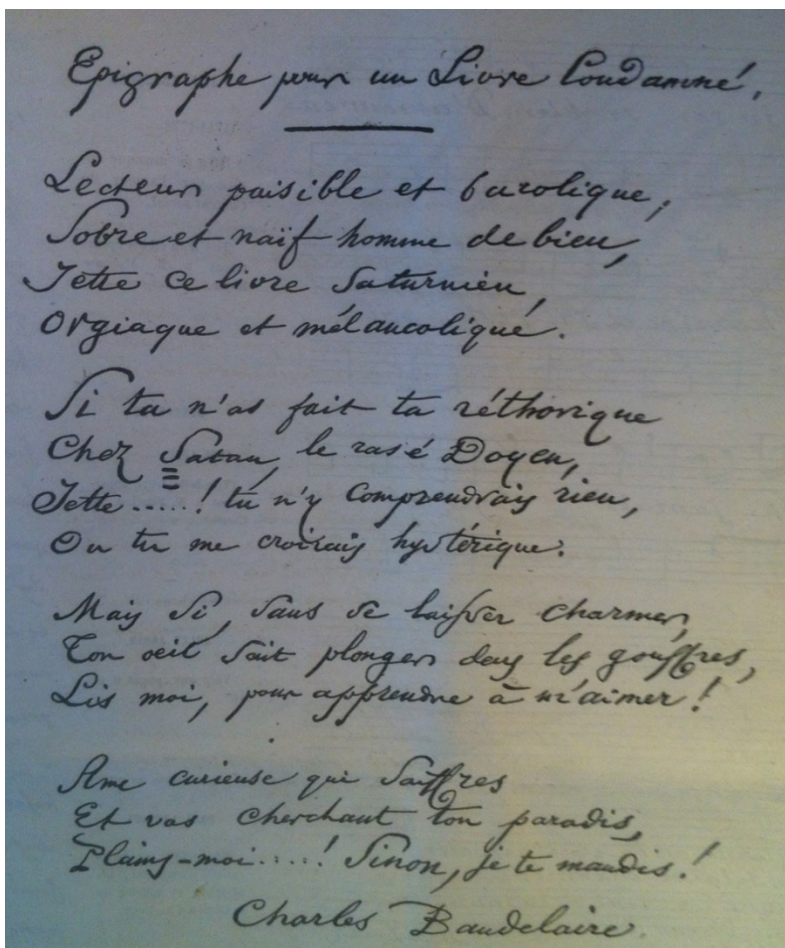 Epigraphe pour un Livre Condamné.
Lecteur paisible et bucolique,
Sobre et naïf homme de bien,
Jette ce livre Saturnien,
Orgiaque et mélancolique.
Si tu n'as fait ta réthorique
Chez Satan, le rusé Doyen,
Jette.....! tu n'y Comprendrais rien,
Ou tu me croirais hystérique.
Mais Si, Sans se laisser charmer,
Ton oeil Sait plonger dans les gouffres,
Lis moi, pour apprendre à m'aimer!
Ame curieuse qui Souffres
Et vas Cherchant ton paradis,
Plains-moi....! Sinon, je te maudis!
Charles Baudelaire.